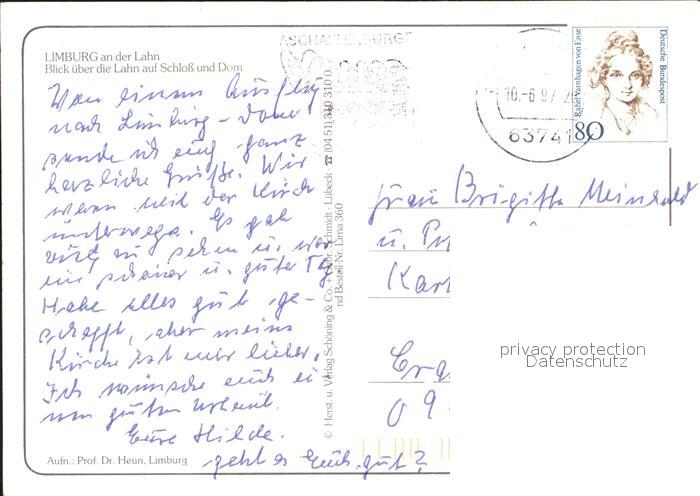 LIMBURG an der Lahn
Blick über die Lahn auf Schloß und Dom
Von einem Ausflug
nach Limburg - Dom
sende ich euch ganz
herzliche Grüße. Wir
waren mit der Kirch
unterwegs. Es gab
viel zu sehen u. war
ein schöner u. guter Tag
Habe alles gut ge-
schafft, aber meine
Kirche ist mir lieber.
Ich wünsche euch ei
nen guten Urlaub.
Eure Hilde.
geht es Euch gut?
Aufn.: Prof. Dr. Heun, Limburg
© Herst. u. Verlag Schöning & Co. + Gebr. Schmidt · Lübeck ☎ (04 51) 310 310 0
nd Bestell-Nr. Lima 360
ASCHAFFENBURG
10.-6.97
63741
Rahel Varnhagen von Ense
Deutsche Bundespost
80
Frau Brigitte Meinhold
u.
Kar
Cra
09
privacy protection
Datenschutz